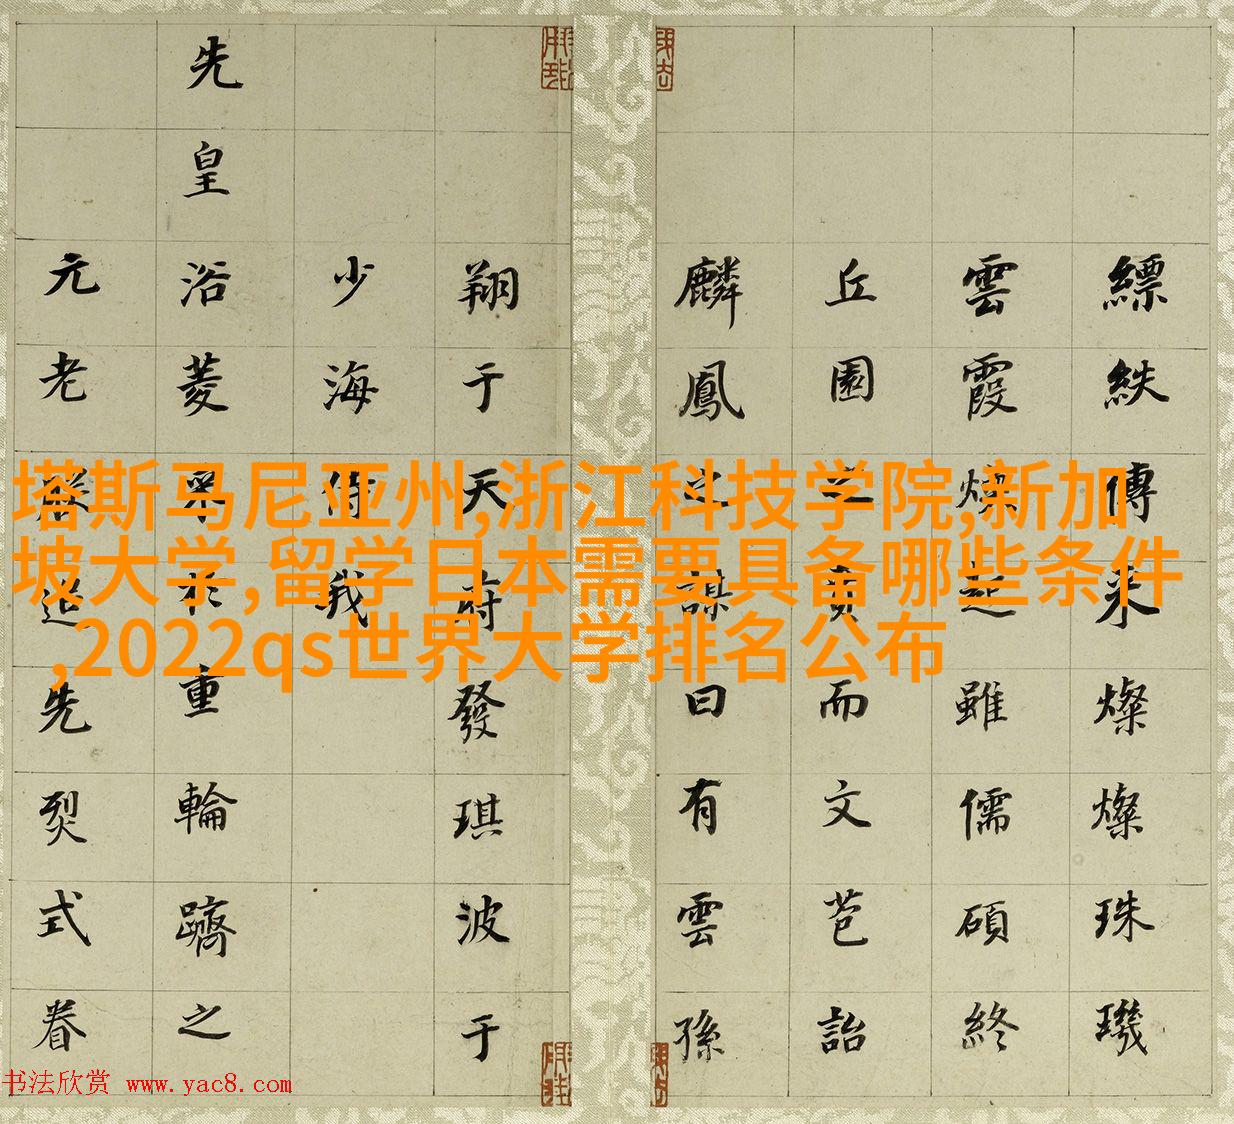 縹紩傳来燦燦珠璣
雲霞燦起雖儒碩終
丘園之賁而文芭詒
麟鳳之謀曰有雲孫
翔于天府發琪波于
少海侍我
先皇浴菱采於重輪躋之
元老追先烈式眷
塔斯马尼亚州,浙江科技学院,新加
坡大学,留学日本需要具备哪些条件
,2022qs世界大学排名公布
书法欣赏 www.yac8.com